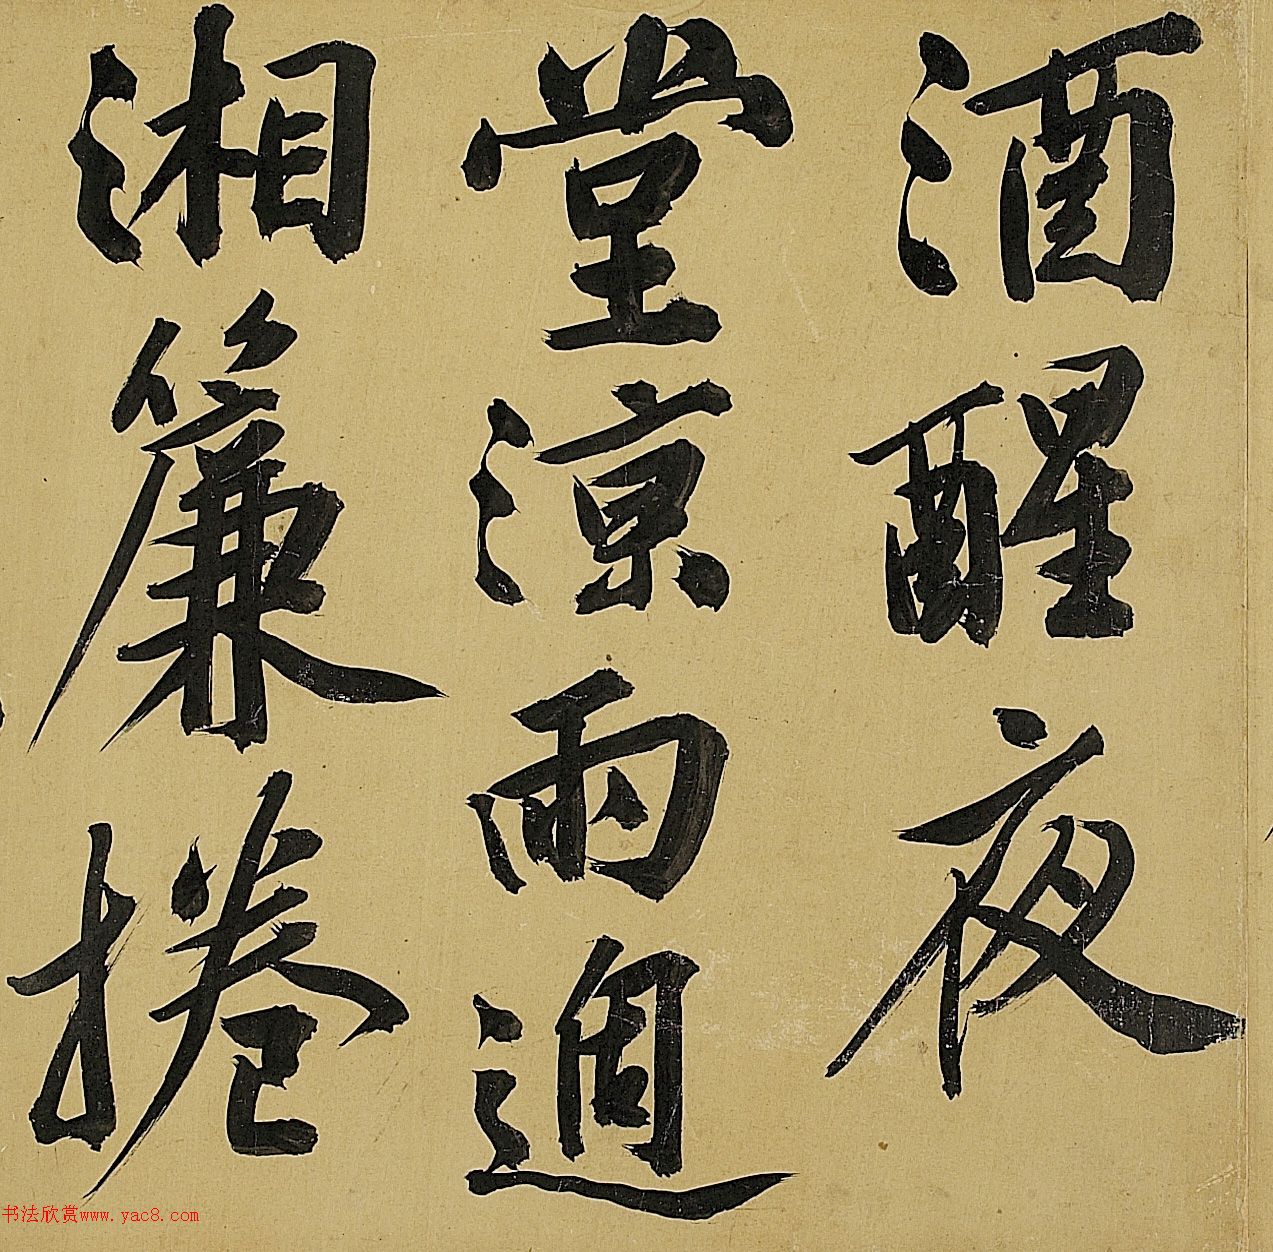 酒醒夜
堂凉雨週
湘簾捲
书法欣赏www.yac8.com